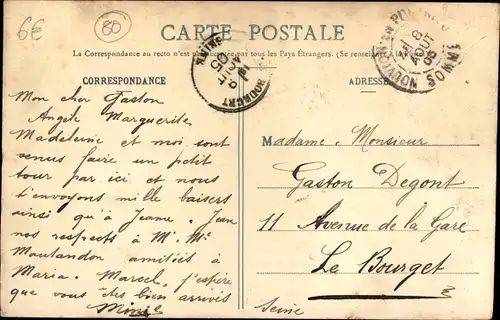 6€
80
CARTE POSTALE
La Correspondance au recto n'est pas acceptée par tous les Pays Étrangers. (Se renseigner à la
CORRESPONDANCE
ADRESSE
8
AOUT
SOMME
9
AOUT
SEINE
Mon cher Gaston
Angèle Marguerite
Madeleine et moi sont
venus faire un petit
tour par ici et nous
t'envoyons mille baisers
ainsi qu'à Jeanne. Jean
nos respects à Mr. Me
Moutandon amitiés à
Maria. Marcel, j'espère
que vous êtes bien arrivés
Mimie
Madame. Monsieur
Gaston Degont
11 Avenue de la Gare
Le Bourget
Seine